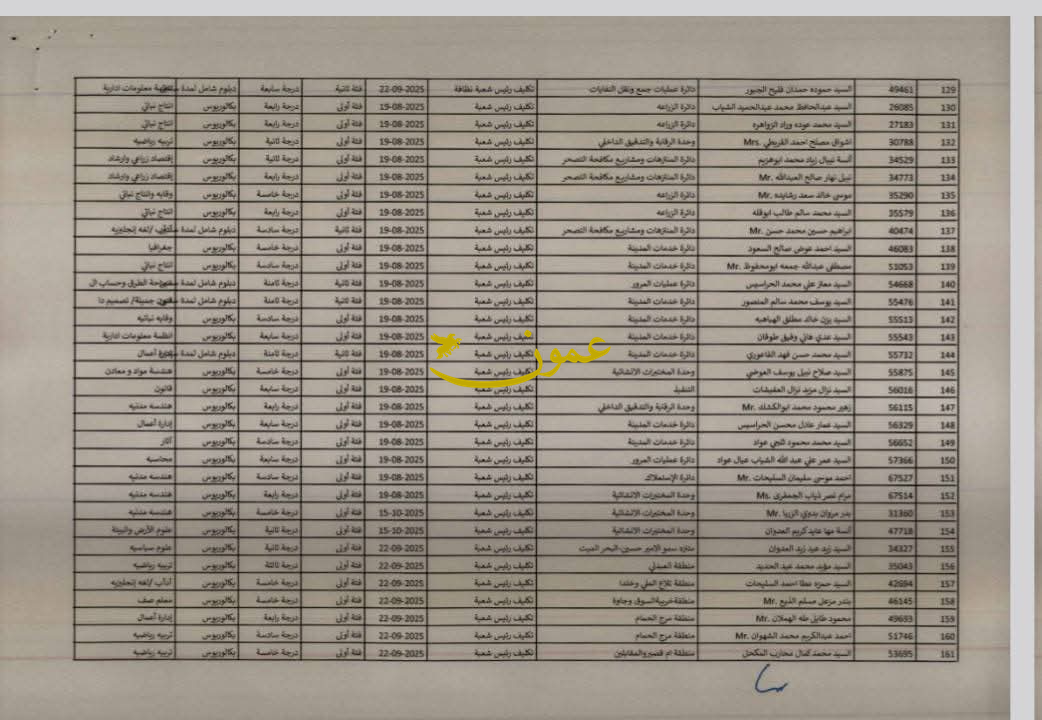 129 49461 السيد حموده حمدان فليح الجبور دائرة عمليات جمع ونقل النفايات تكليف رئيس شعبة نظافة 22-09-2025 فئة ثانية درجة سابعة دبلوم شامل لمدة معلومات ادارية
130 26085 السيد عبدالحافظ محمد عبدالحميد الشياب دائرة الزراعه تكليف رئيس شعبة 19-08-2025 فئة أولى درجة رابعة بكالوريوس انتاج نباتي
131 27183 السيد محمد عوده وراد الزواهره دائرة الزراعه تكليف رئيس شعبة 19-08-2025 فئة أولى درجة رابعة بكالوريوس انتاج نباتي
132 30788 Mrs. اشواق مصلح احمد القريطي وحدة الرقابة والتدقيق الداخلي تكليف رئيس شعبة 19-08-2025 فئة أولى درجة ثانية بكالوريوس تربيه رياضيه
133 34529 آنسة نيبال زياد محمد ابوهزيم دائرة المتنزهات ومشاريع مكافحة التصحر تكليف رئيس شعبة 19-08-2025 فئة أولى درجة ثانية بكالوريوس إقتصاد زراعي وارشاد
134 34773 Mr. نبيل نهار صالح العبدالله دائرة المتنزهات ومشاريع مكافحة التصحر تكليف رئيس شعبة 19-08-2025 فئة أولى درجة رابعة بكالوريوس إقتصاد زراعي وارشاد
135 35290 Mr. موسى خالد سعد رشايده دائرة الزراعه تكليف رئيس شعبة 19-08-2025 فئة أولى درجة خامسة بكالوريوس وقايه وانتاج نباتي
136 35579 السيد محمد سالم طالب ابوقله دائرة الزراعه تكليف رئيس شعبة 19-08-2025 فئة أولى درجة رابعة بكالوريوس انتاج نباتي
137 40474 Mr. ابراهيم حسين محمد حسن دائرة المتنزهات ومشاريع مكافحة التصحر تكليف رئيس شعبة 19-08-2025 فئة ثانية درجة سادسة دبلوم شامل لمدة /لغه إنجليزيه
138 46083 السيد احمد عوض صالح السعود دائرة خدمات المدينة تكليف رئيس شعبة 19-08-2025 فئة أولى درجة خامسة بكالوريوس جغرافيا
139 51053 Mr. مصطفى عبدالله جمعه ابومحفوظ دائرة خدمات المدينة تكليف رئيس شعبة 19-08-2025 فئة أولى درجة سادسة بكالوريوس انتاج نباتي
140 54668 السيد معاز علي محمد الحراسيس دائرة عمليات المرور تكليف رئيس شعبة 19-08-2025 فئة ثانية درجة ثامنة دبلوم شامل لمدة الطرق وحساب ال
141 55476 السيد يوسف محمد سالم المنصور دائرة خدمات المدينة تكليف رئيس شعبة 19-08-2025 فئة ثانية درجة ثامنة دبلوم شامل لمدة جميلة/ تصميم دا
142 55513 السيد يزن خالد مطلق الهباهبه دائرة خدمات المدينة تكليف رئيس شعبة 19-08-2025 فئة أولى درجة سادسة بكالوريوس وقايه نباتيه
143 55543 السيد عدي هاني وفيق طوقان دائرة خدمات المدينة تكليف رئيس شعبة 19-08-2025 فئة أولى درجة سابعة بكالوريوس انظمة معلومات ادارية
144 55732 السيد محمد حسن فهد الفاعوري دائرة خدمات المدينة تكليف رئيس شعبة 19-08-2025 فئة ثانية درجة ثامنة دبلوم شامل لمدة أعمال
145 55875 السيد صلاح نبيل يوسف العوضي وحدة المختبرات الانشائية تكليف رئيس شعبة 19-08-2025 فئة أولى درجة خامسة بكالوريوس هندسة مواد و معادن
146 56016 السيد نزال مزيد نزال العفيشات التنفيذ تكليف رئيس شعبة 19-08-2025 فئة أولى درجة سابعة بكالوريوس قانون
147 56115 Mr. زهير محمود محمد ابوالكشك وحدة الرقابة والتدقيق الداخلي تكليف رئيس شعبة 19-08-2025 فئة أولى درجة رابعة بكالوريوس هندسه مدنيه
148 56329 السيد عمار عادل محسن الحراسيس دائرة خدمات المدينة تكليف رئيس شعبة 19-08-2025 فئة أولى درجة سابعة بكالوريوس إدارة أعمال
149 56652 السيد محمد محمود ثلجي عواد دائرة خدمات المدينة تكليف رئيس شعبة 19-08-2025 فئة أولى درجة سادسة بكالوريوس آثار
150 57366 السيد عمر علي عبد الله الشياب عيال عواد دائرة عمليات المرور تكليف رئيس شعبة 19-08-2025 فئة أولى درجة سابعة بكالوريوس محاسبه
151 67527 Mr. احمد موسى سليمان السليحات دائرة الإستملاك تكليف رئيس شعبة 19-08-2025 فئة أولى درجة سادسة بكالوريوس هندسه مدنيه
152 67514 Ms. مرام نصر ذياب الجعفري وحدة المختبرات الانشائية تكليف رئيس شعبة 19-08-2025 فئة أولى درجة رابعة بكالوريوس هندسه مدنيه
153 31360 Mr. بدر مروان بدوي الزربا وحدة المختبرات الانشائية تكليف رئيس شعبة 15-10-2025 فئة أولى درجة خامسة بكالوريوس هندسه مدنيه
154 47718 آنسة مها عايد كريم العدوان وحدة المختبرات الانشائية تكليف رئيس شعبة 15-10-2025 فئة أولى درجة ثانية بكالوريوس علوم الأرض والبيئة
155 34327 السيد زيد عبد زيد العدوان متنزه سمو الامير حسين-البحر الميت تكليف رئيس شعبة 22-09-2025 فئة أولى درجة ثانية بكالوريوس علوم سياسيه
156 35043 السيد مؤيد محمد عبد الحديد منطقة العبدلي تكليف رئيس شعبة 22-09-2025 فئة أولى درجة ثالثة بكالوريوس تربيه رياضيه
157 42694 السيد حمزه عطا احمد السليحات منطقة تلاع العلي وخلدا تكليف رئيس شعبة 22-09-2025 فئة أولى درجة خامسة بكالوريوس آداب /لغه إنجليزيه
158 46145 Mr. بندر مزعل مسلم الذيع منطقة خريبة السوق وجاوة تكليف رئيس شعبة 22-09-2025 فئة أولى درجة خامسة بكالوريوس معلم صف
159 49693 Mr. محمود طايل طه الهملان منطقة مرج الحمام تكليف رئيس شعبة 22-09-2025 فئة أولى درجة رابعة بكالوريوس إدارة أعمال
160 51746 Mr. احمد عبدالكريم محمد الشهوان منطقة مرج الحمام تكليف رئيس شعبة 22-09-2025 فئة أولى درجة سادسة بكالوريوس تربيه رياضيه
161 53695 السيد محمد كمال محارب المكحل منطقة ام قصير والمقابلين تكليف رئيس شعبة 22-09-2025 فئة أولى درجة خامسة بكالوريوس تربيه رياضيه
عمون